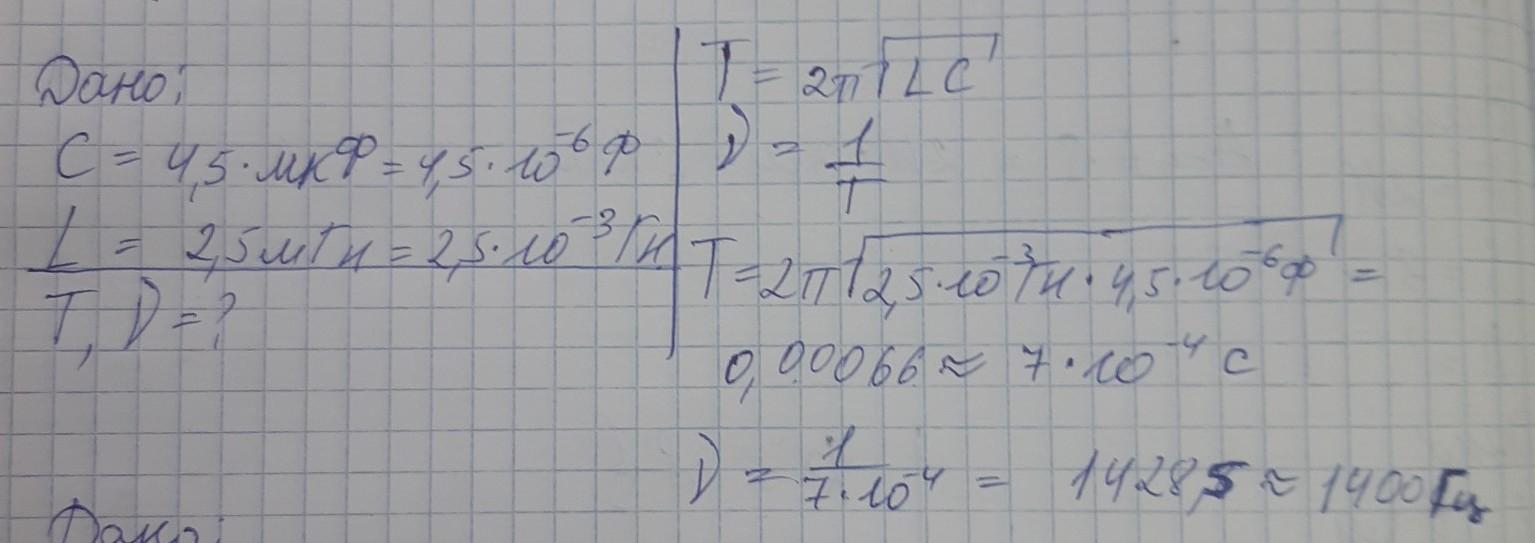 Дано:
C = 4,5·мкФ = 4,5·10⁻⁶ Ф
L = 2,5мГн = 2,5·10⁻³ Гн
T, ν = ?
T = 2π√LC
ν = 1/T
T = 2π√2,5·10⁻³Гн·4,5·10⁻⁶Ф =
0,00066 ≈ 7·10⁻⁴ с
ν = 1/7·10⁻⁴ = 1428,5 ≈ 1400Гц
Дано: